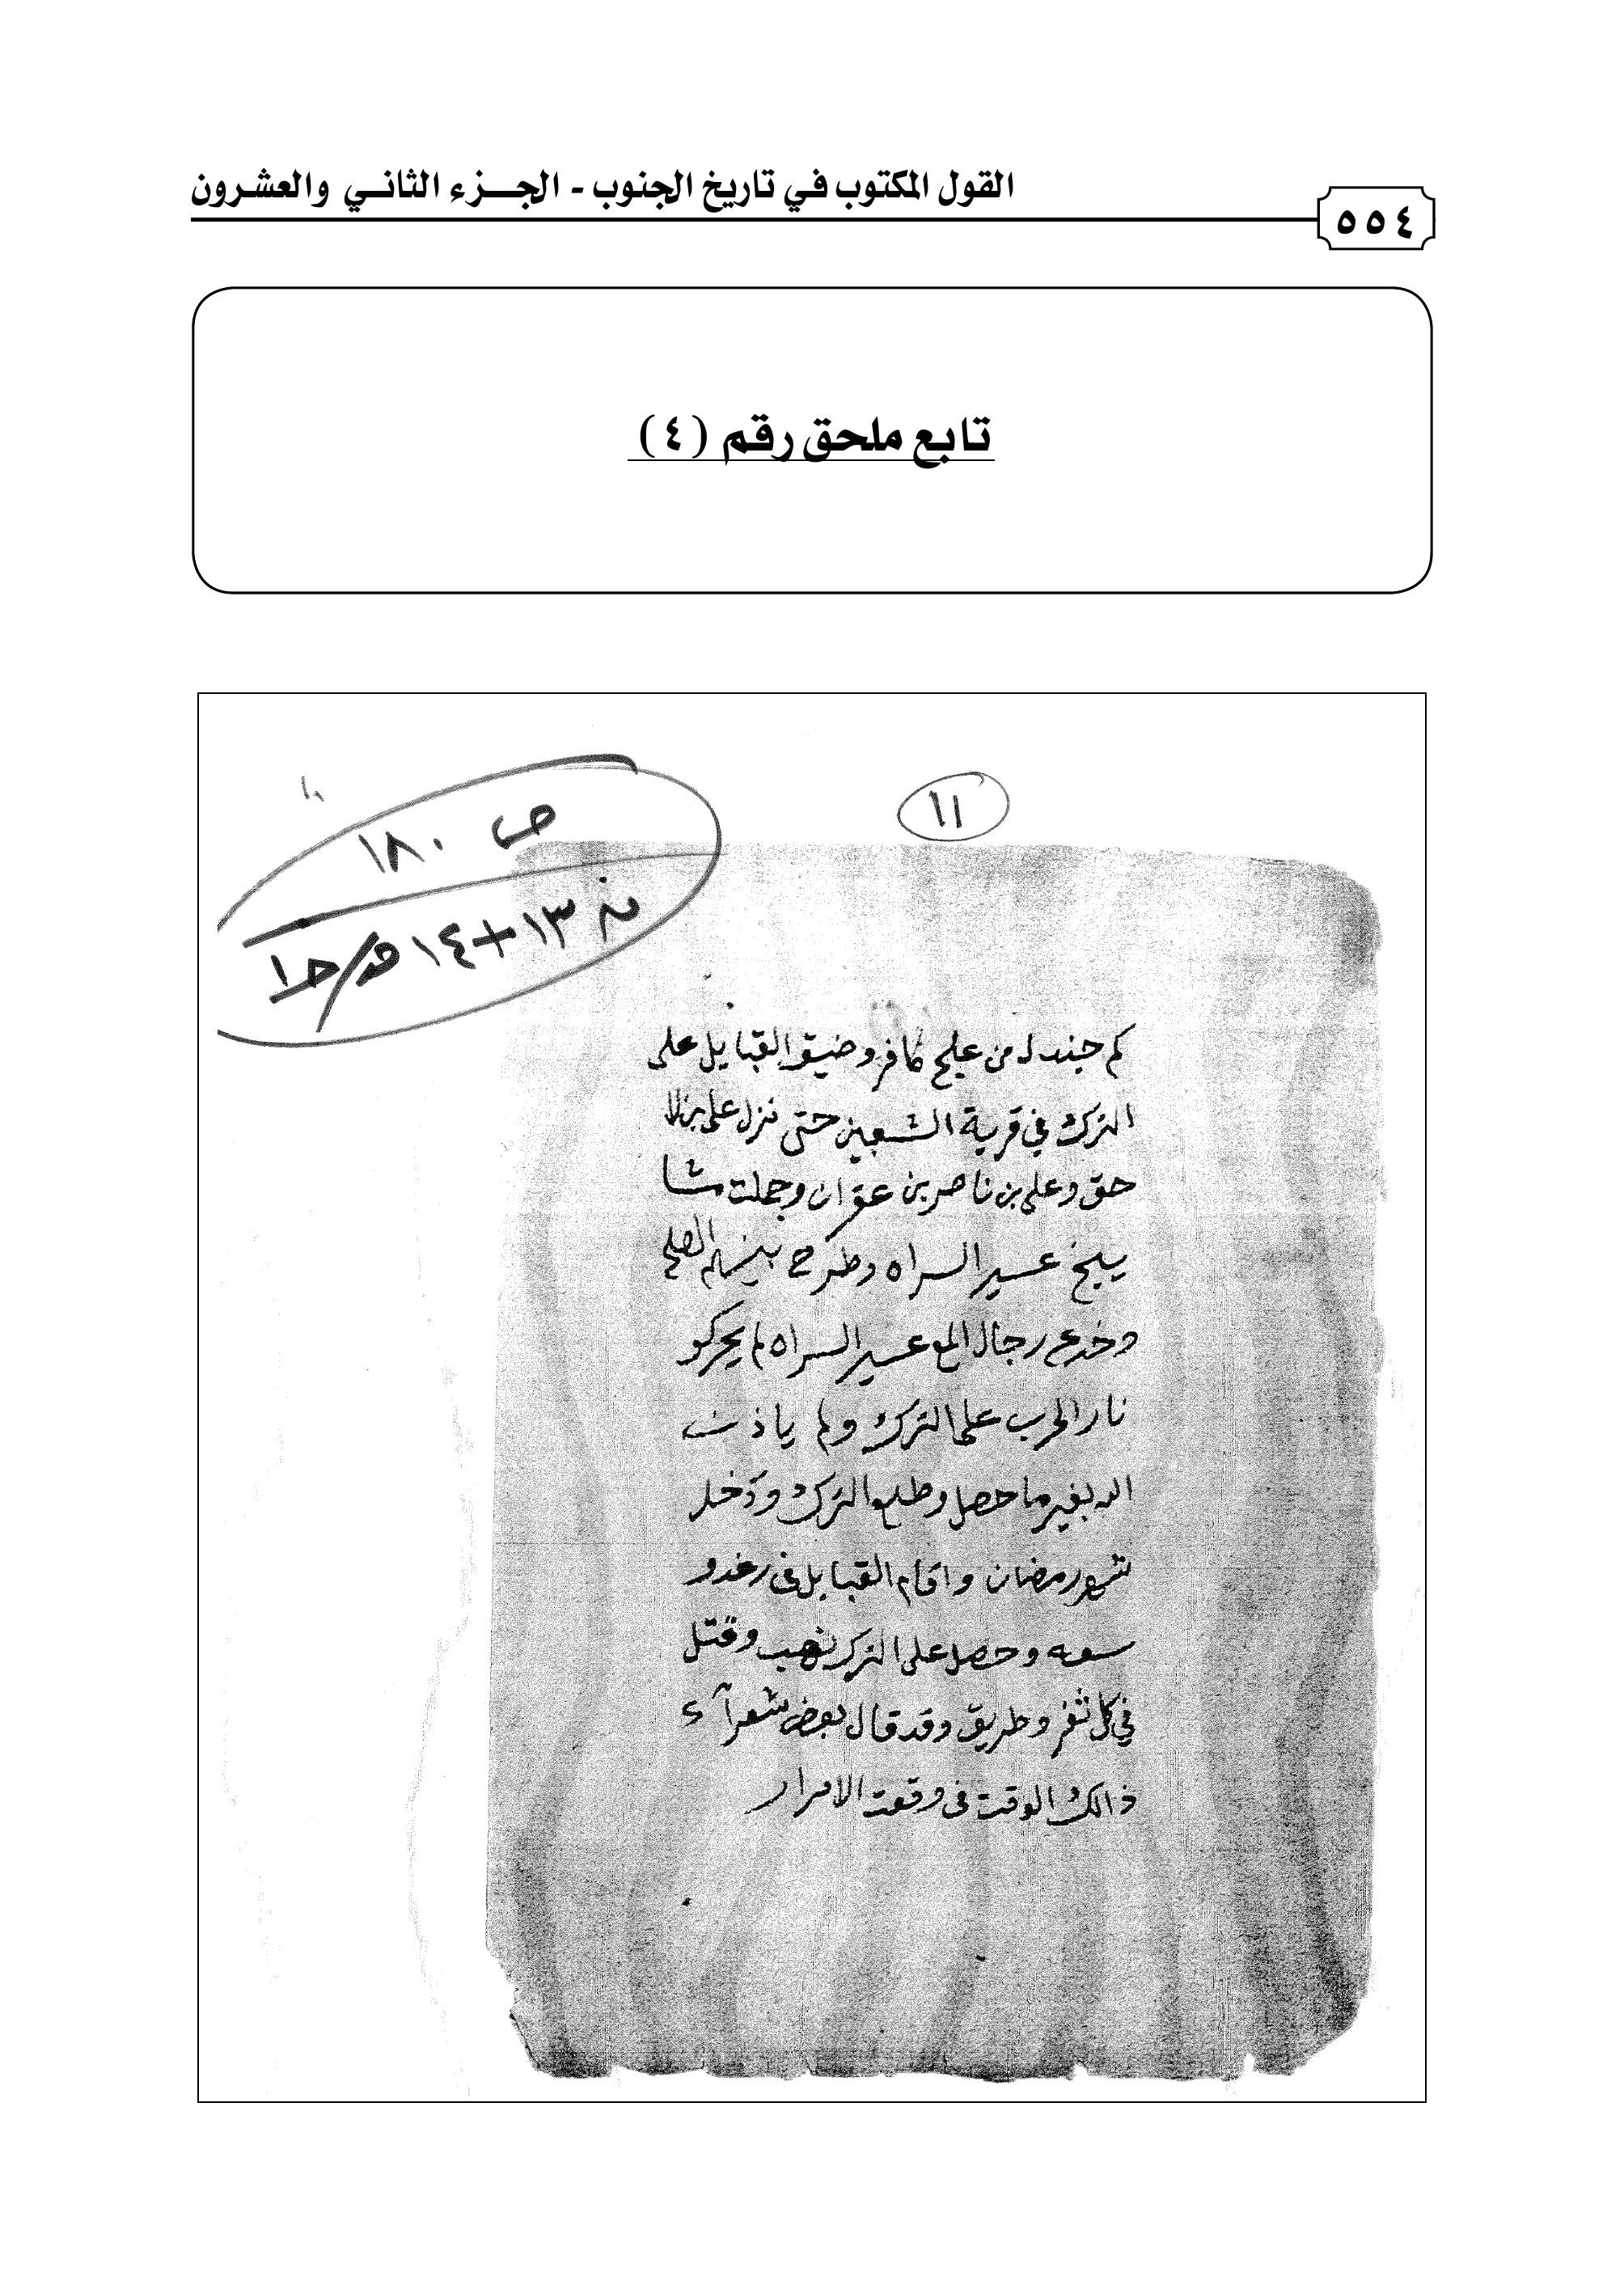 القول المكتوب في تاريخ الجنوب - الجزء الثاني والعشرون
٥٥٤
تابع ملحق رقم (٤)
١١
ص ١٨٠
١٣+١٤
كم جندله من علج كافر وضيق القبايل على
الترك في قرية الشعبين حتى نزل علي بن لا
حق وعلي بن ناصر بن عقران وجملت مشا
يخ عسير السراه وطرح بينهم الصلح
وخدع رجال المع عسير السراه لم يحركو
نار الحرب على الترك ولم ياذن
الله بغير ما حصل وطلع الترك ودخل
شهر رمضان واقام القبايل في رغد و
سعه وحصل على الترك نهب وقتل
في كل ثغر وطريق وقد قال بعض شعرآء
ذالك الوقت في وقعت الامرار